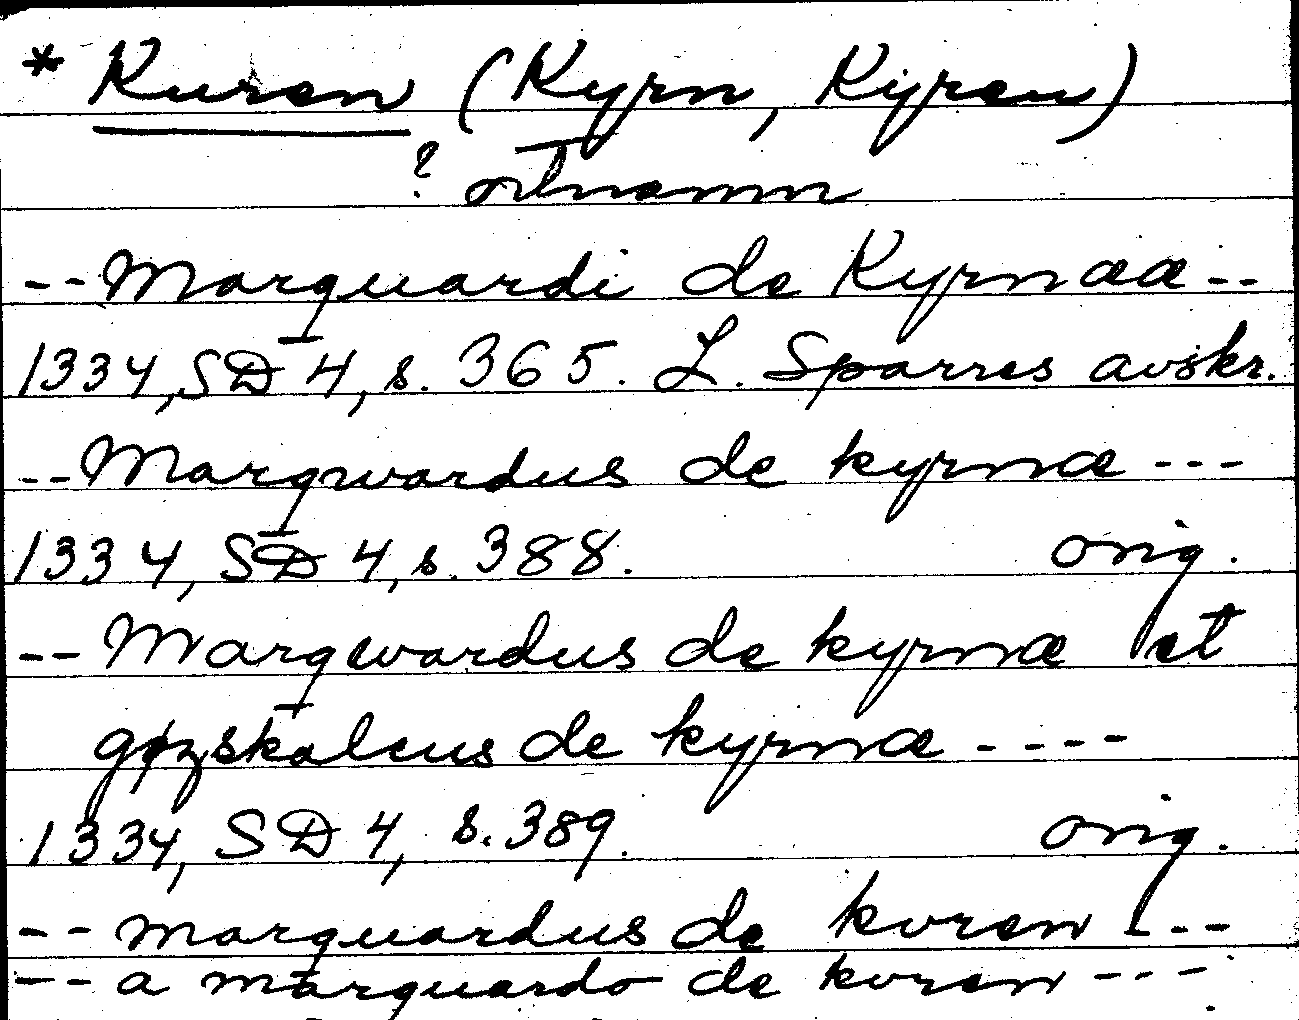 * Kuren (Kyrn, Kyren)
? ortnamn
-- Marquardi de Kyrnææ --
1334, SD 4, s. 365. L. Sparres avskr.
-- Marqwardus de kyrnæ ---
1334, SD 4, s. 388. orig.
-- Marqwardus de kyrnæ et
gøzskalcus de kyrnæ ----
1334, SD 4, s. 389. orig.
-- marquardus de kvren ---
--- a marquardo de kvren ---